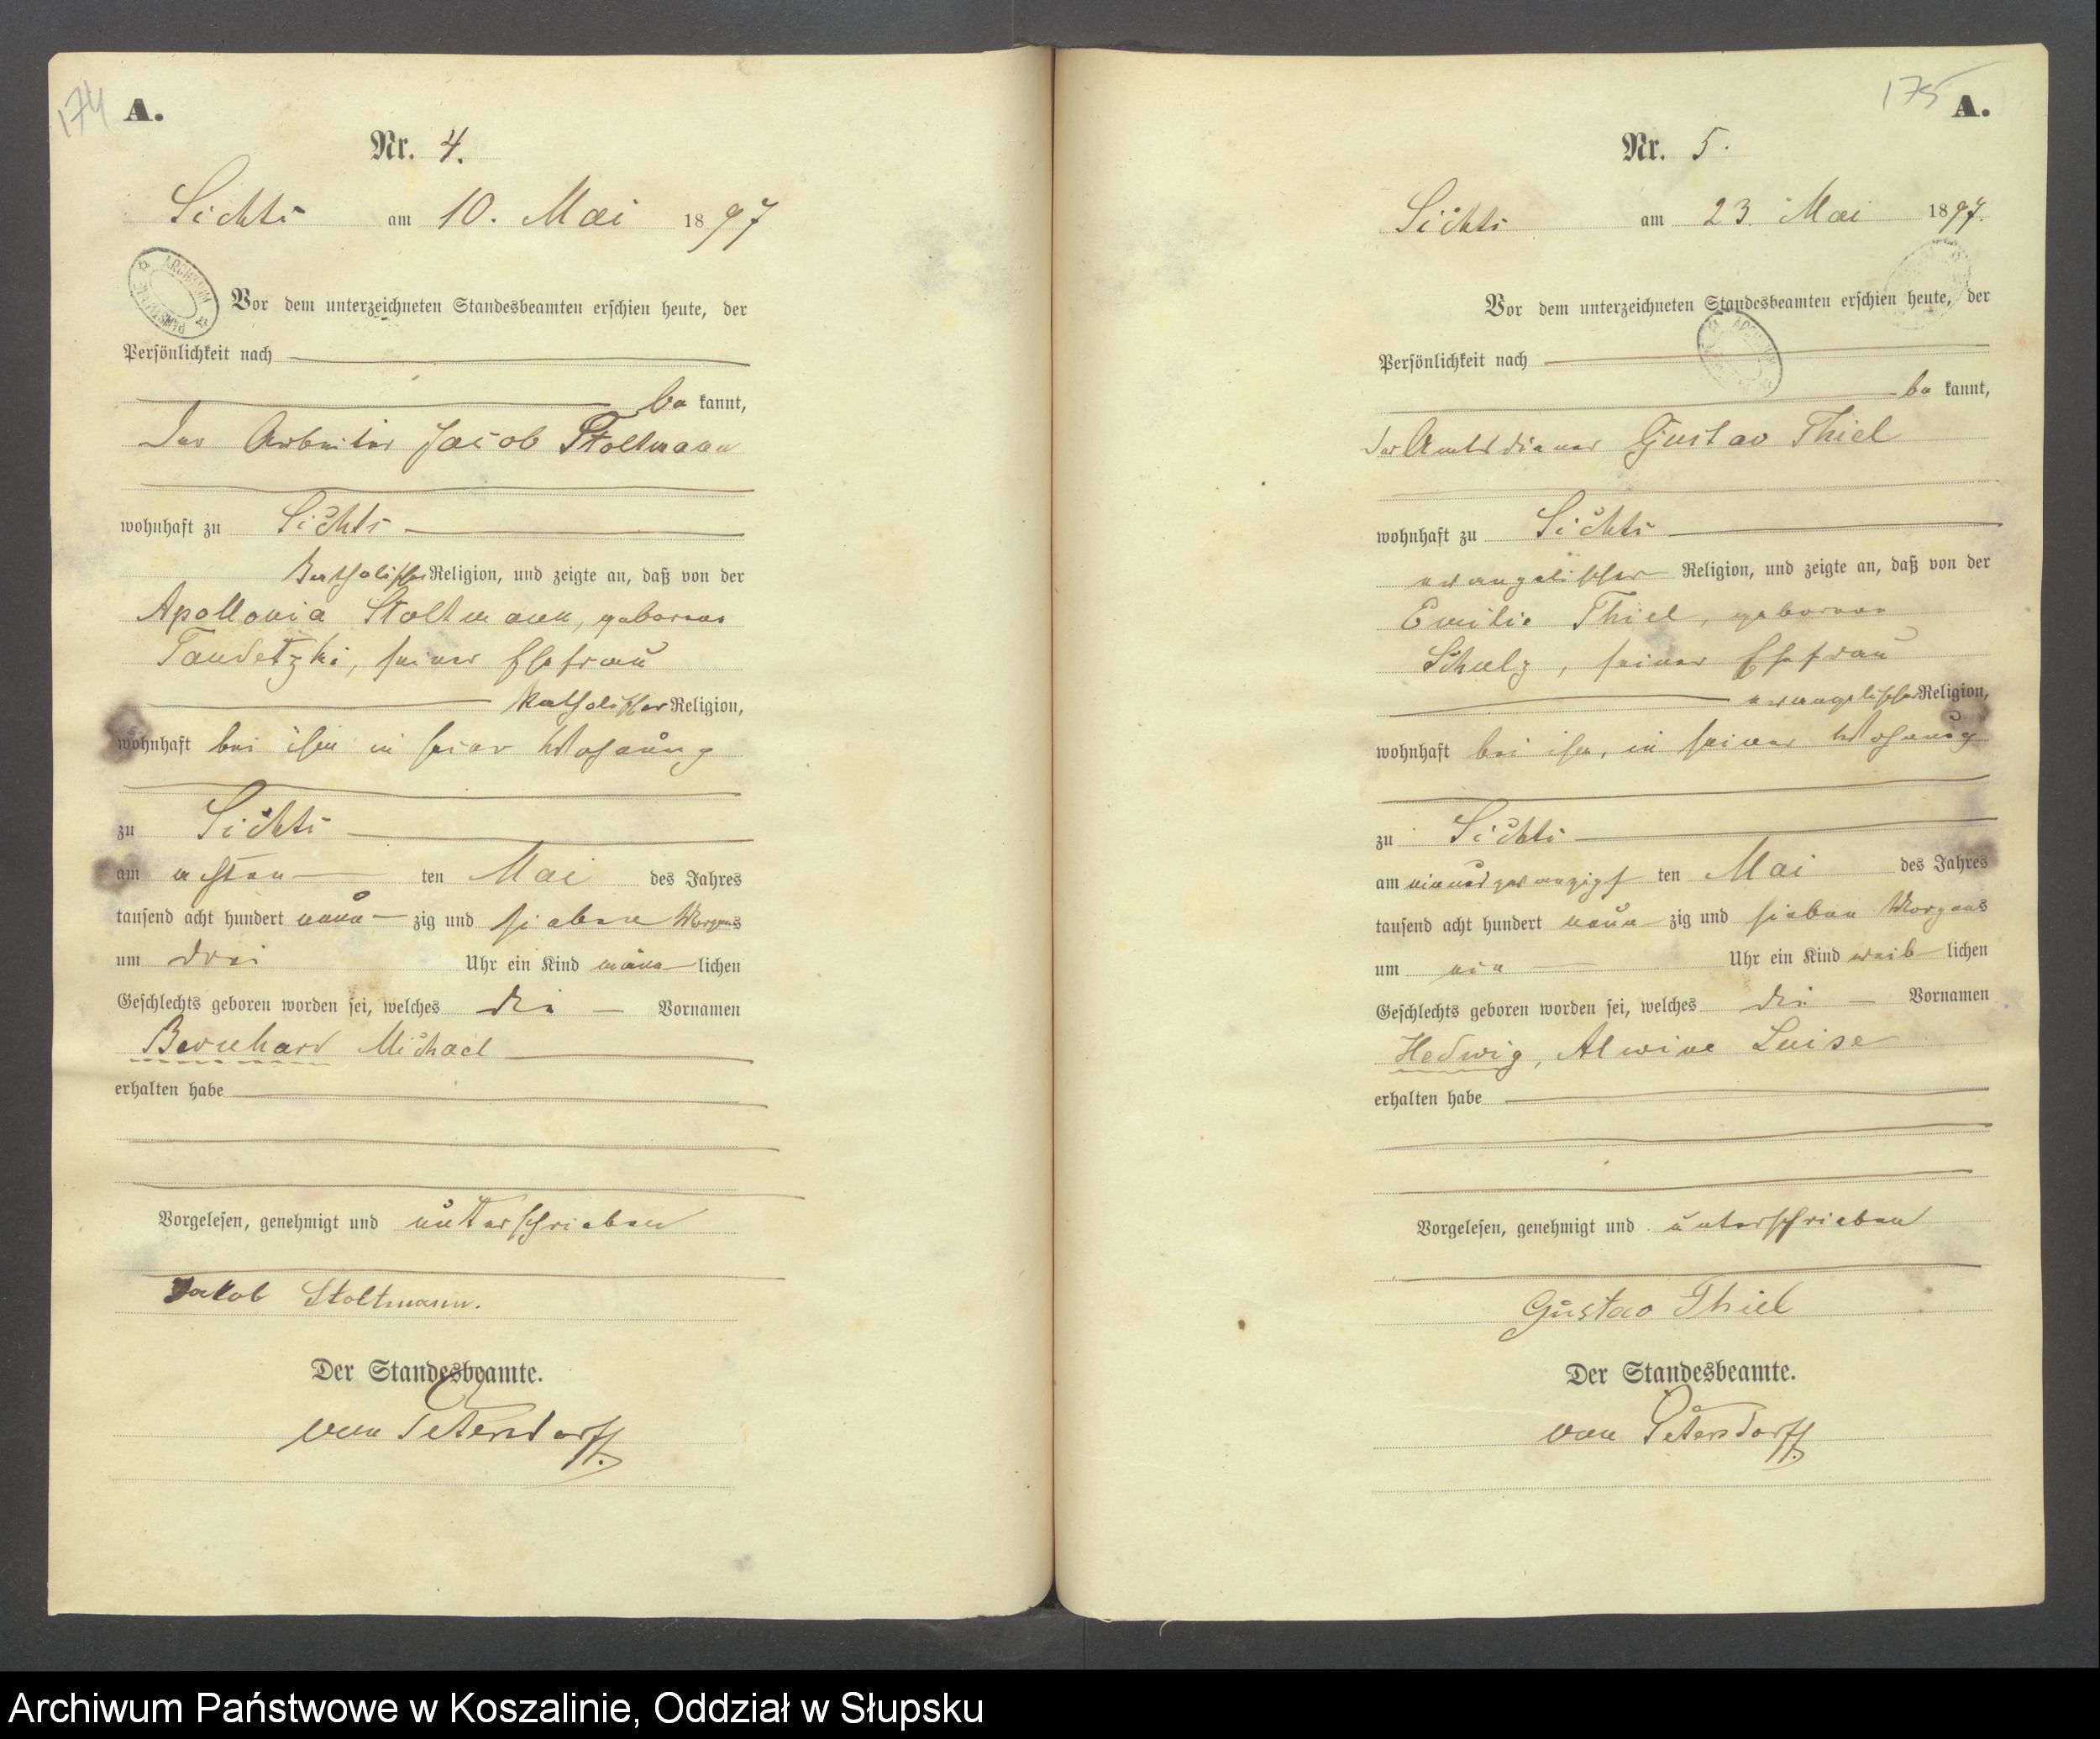 174
A.
Nr. 4.
Sichts am 10. Mai 1897
Vor dem unterzeichneten Standesbeamten erschien heute, der
Persönlichkeit nach
be kannt,
der Arbeiter Jacob Stoltmann
wohnhaft zu Sichts
katholischer Religion, und zeigte an, daß von der
Apollonia Stoltmann, geborene
Tandetzki, seiner Ehefrau
katholischer Religion,
wohnhaft bei ihm in seiner Wohnung
zu Sichts
am achten ten Mai des Jahres
tausend acht hundert neun zig und sieben Morgens
um drei Uhr ein Kind männ lichen
Geschlechts geboren worden sei, welches die Vornamen
Bernhard Michael
erhalten habe
Vorgelesen, genehmigt und unterschrieben
Jakob Stoltmann.
Der Standesbeamte.
von Petersdorff.
175
A.
Nr. 5.
Sichts am 23. Mai 1897.
Vor dem unterzeichneten Standesbeamten erschien heute, der
Persönlichkeit nach
be kannt,
der Amtsdiener Gustav Thiel
wohnhaft zu Sichts
evangelischer Religion, und zeigte an, daß von der
Emilie Thiel, geborene
Schulz, seiner Ehefrau
evangelischer Religion,
wohnhaft bei ihm, in seiner Wohnung
zu Sichts
am einundzwanzigs ten Mai des Jahres
tausend acht hundert neun zig und sieben Morgens
um ein Uhr ein Kind weib lichen
Geschlechts geboren worden sei, welches die Vornamen
Hedwig, Alwine Luise
erhalten habe
Vorgelesen, genehmigt und unterschrieben
Gustav Thiel
Der Standesbeamte.
von Petersdorff.
Archiwum Państwowe w Koszalinie, Oddział w Słupsku